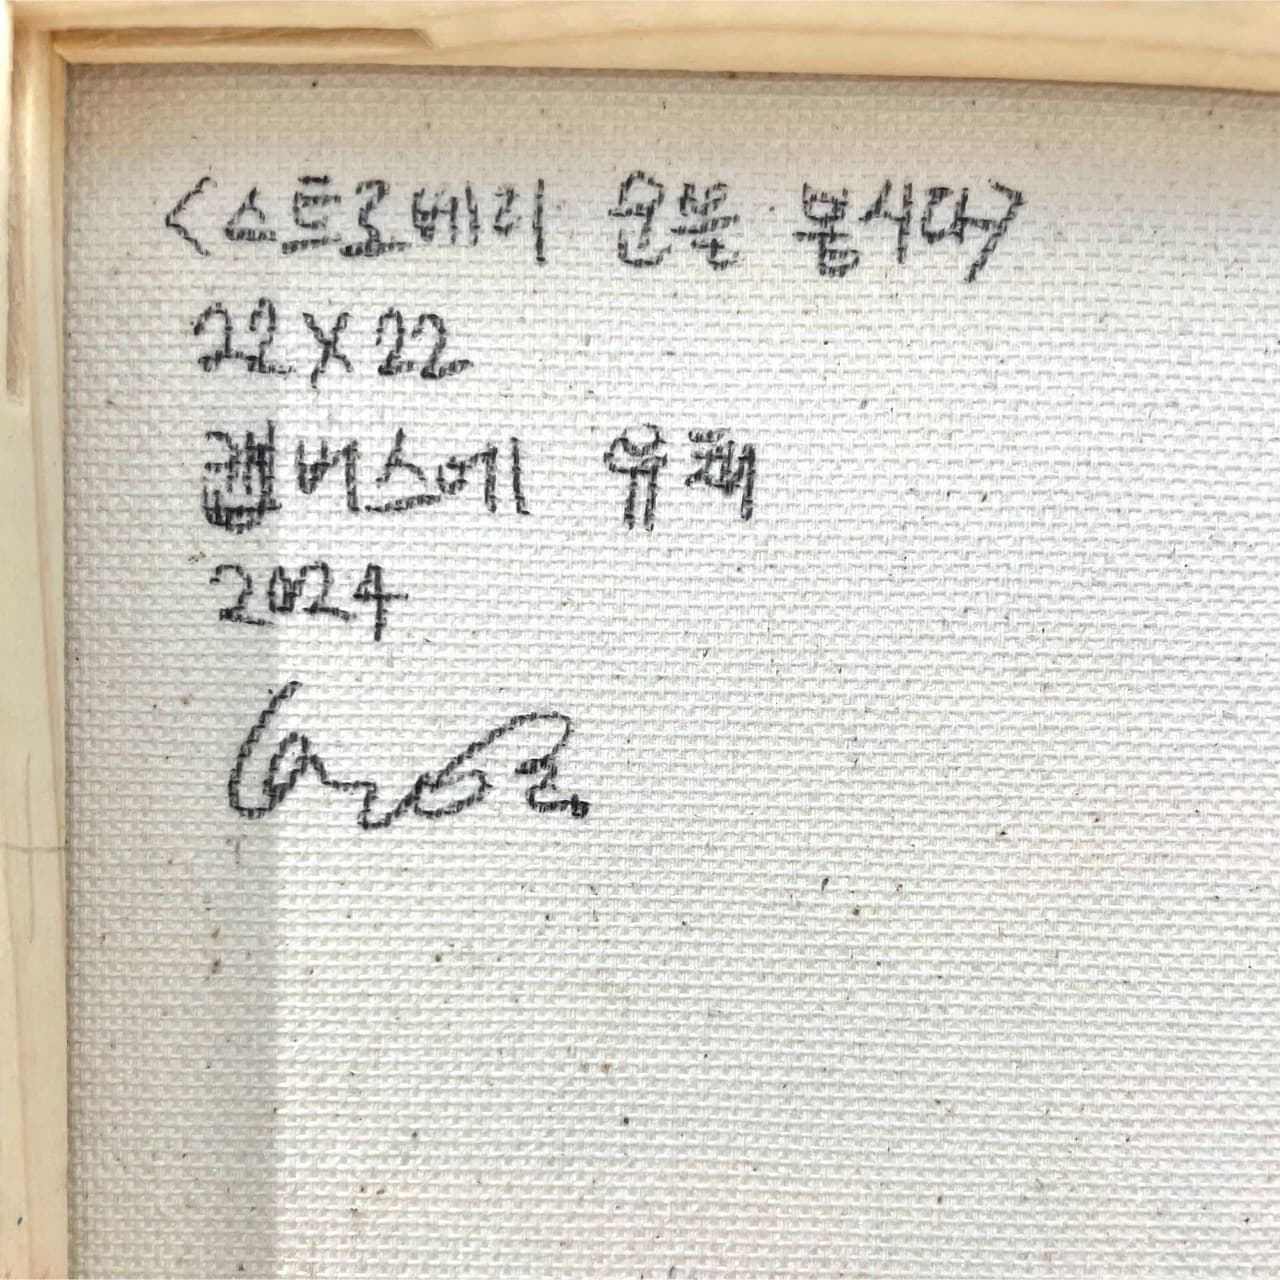 <스트로베리 문뽓 봅시다>
22X22
캔버스에 유채
2024